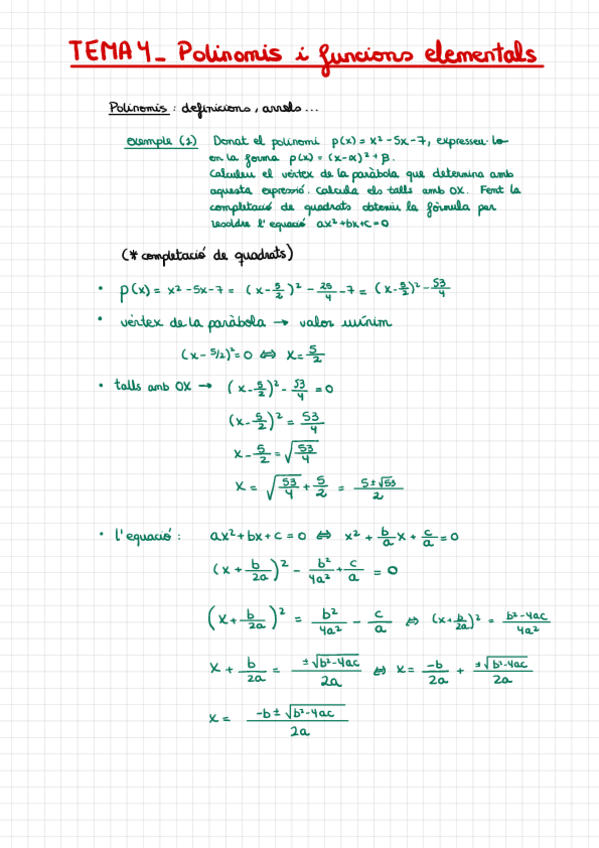 TEMA 4_ Polinomis i funcions elementals
Polinomis : definicions, arrels...
exemple (1) Donat el polinomi p(x) = x² - 5x - 7, expresseu-lo
en la forma p(x) = (x-α)² + β.
Calculeu el vèrtex de la paràbola que determina amb
aquesta expressió. Calcula els talls amb OX. Fent la
completació de quadrats obteniu la fórmula per
resoldre l'equació ax²+bx+c=0
(* completació de quadrats)
• p(x) = x² - 5x - 7 = (x - 5/2)² - 25/4 - 7 = (x - 5/2)² - 53/4
• vèrtex de la paràbola → valor mínim
(x - 5/2)² = 0 ⇔ x = 5/2
• talls amb OX → (x - 5/2)² - 53/4 = 0
(x - 5/2)² = 53/4
x - 5/2 = √(53/4)
x = √(53/4) + 5/2 = (5 ± √53)/2
• l'equació : ax² + bx + c = 0 ⇔ x² + b/a x + c/a = 0
(x + b/2a)² - b²/4a² + c/a = 0
(x + b/2a)² = b²/4a² - c/a ⇔ (x + b/2a)² = (b² - 4ac)/4a²
x + b/2a = ±√(b² - 4ac)/2a ⇔ x = -b/2a + ±√(b² - 4ac)/2a
x = (-b ± √(b² - 4ac))/2a